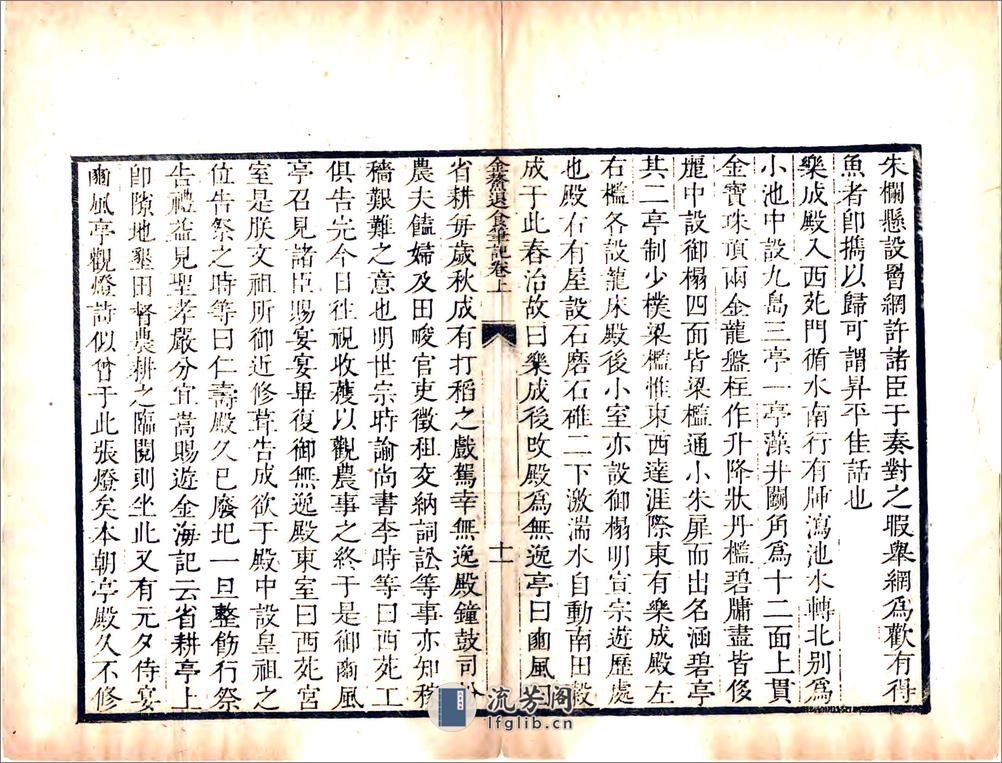 朱欄懸設罾網許諸臣于奏對之暇舉網爲歡有得
魚者卽攜以歸可謂昇平佳話也
樂成殿入西苑門循水南行有牐瀉池水轉北別爲
小池中設九島三亭一亭藻井鬬角爲十二面上貫
金寶珠頂兩金龍盤柱作升降狀丹檻碧牖盡皆侈
麗中設御榻四面皆梁檻通小朱扉而出名涵碧亭
其二亭制少樸梁檻惟東西達涯際東有樂成殿左
右檻各設龍床殿後小室亦設御榻明宣宗遊歷處
也殿右有屋設石磨石碓二下激湍水自動南田穀
成于此舂治故曰樂成後改殿爲無逸亭曰豳風曰
金鰲退食筆記卷上
十一
省耕每歲秋成有打稻之戲駕幸無逸殿鐘鼓司扮
農夫饁婦及田畯官吏徵租交納詞訟等事亦知稼
穡艱難之意也明世宗時諭尚書李時等曰西苑工
俱告完今日往視收穫以觀農事之終于是御豳風
亭召見諸臣賜宴宴畢復御無逸殿東室曰西苑宮
室是朕文祖所御近修葺告成欲于殿中設皇祖之
位告祭之時等曰仁壽殿久已廢圯一旦整飭行祭
告禮益見聖孝嚴分宜嵩賜遊金海記云省耕亭上
卽隙地墾田督農耕之臨閱則坐此又有元夕侍宴
豳風亭觀燈詩似曾于此張燈矣本朝亭殿久不修
流芳阁
lfglib.cn